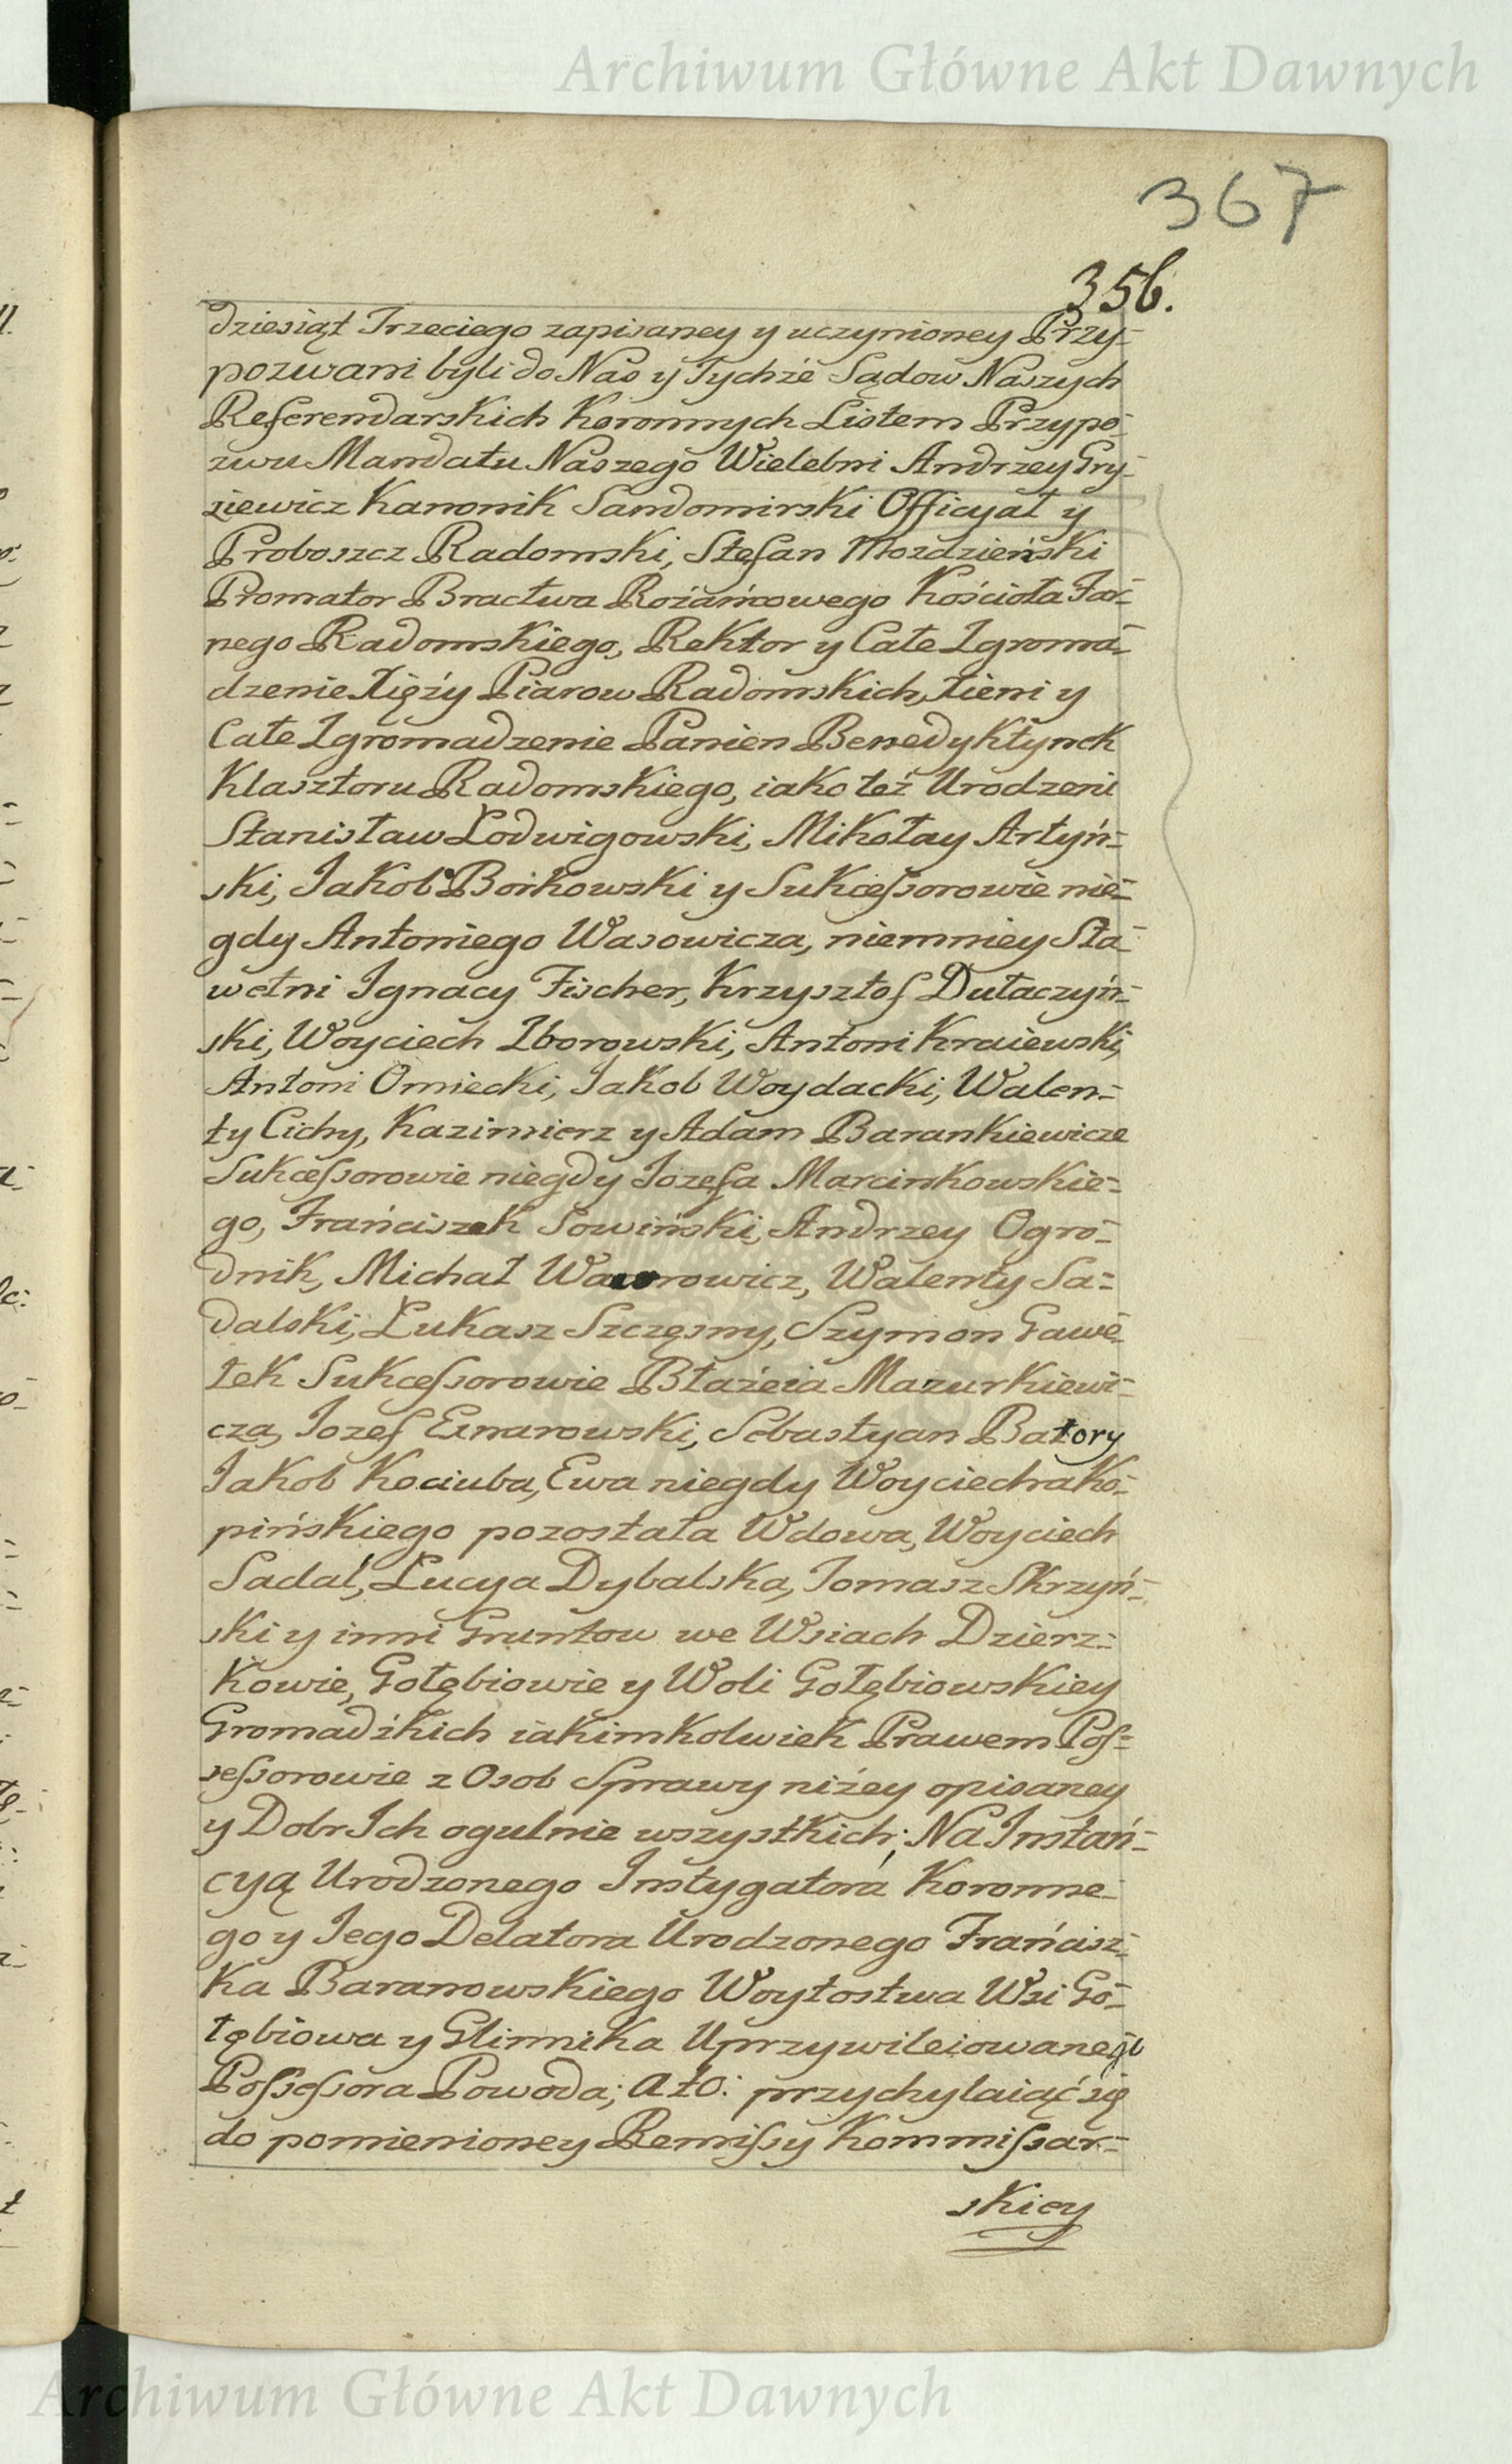 Archiwum Główne Akt Dawnych
367
356.
dziesiąt Trzeciego zapisaney y uczynioney Przy-
pozwani byli do Nas y Tychże Sądow Naszych
Referendarskich Koronnych Listem Przypo-
zwu Mandatu Naszego Wielebni Andrzey Gry-
ziewicz Kanonik Sandomirski Officyał y
Proboszcz Radomski, Stefan Mozdzieński
Promator Bractwa Rożańcowego Kościoła Far-
nego Radomskiego, Rektor y Całe Zgroma-
dzenie Xięży Piarow Radomskich, Xieni y
Całe Zgromadzenie Panien Benedyktynek
Klasztoru Radomskiego, iako też Urodzeni
Stanisław Lodwigowski, Mikołay Artyń-
ski, Jakob Borkowski y Sukcessorowie nie-
gdy Antoniego Wasowicza, niemniey Sła-
wetni Ignacy Fischer, Krzysztof Dutaczyń-
ski, Woyciech Zborowski, Antoni Kraiewski,
Antoni Omiecki, Jakob Woydacki, Walen-
ty Cichy, Kazimierz y Adam Barankiewicze
Sukcessorowie niegdy Jozefa Marcinkowskie-
go, Frańciszek Sowiński, Andrzey Ogro-
dnik, Michał Walenty Sa-
dalski, Łukasz Szczęsny, Szymon Gawe-
łek Sukcessorowie Błażeia Mazurkiewi-
cza, Jozef Sebastyan Batory
Jakob Kociuba, Ewa niegdy Woyciecha Ko-
pińskiego pozostała Wdowa, Woyciech
Sadal, Łucya Dybalska, Tomasz Skrzyń-
ski y inni Gruntow we Wsiach Dzierz-
kowie, Gołębiowie y Woli Gołębiowskiey
Gromadzkich iakimkolwiek Prawem Pos-
sessorowie z Osob Sprawy niżey opisaney
y Dobr Ich ogulnie wszystkich; Na Instań-
cyą Urodzonego Instygatora Koronne-
go y Jego Delatora Urodzonego Frańcisz-
ka Baranowskiego Woytostwa Wsi Go-
łębiowa y Glinnika Uprzywileiowanego
Possessora Powoda; ato: przychylaiąć się
do pomienioney Remissy Kommissar-
skiey
Archiwum Główne Akt Dawnych